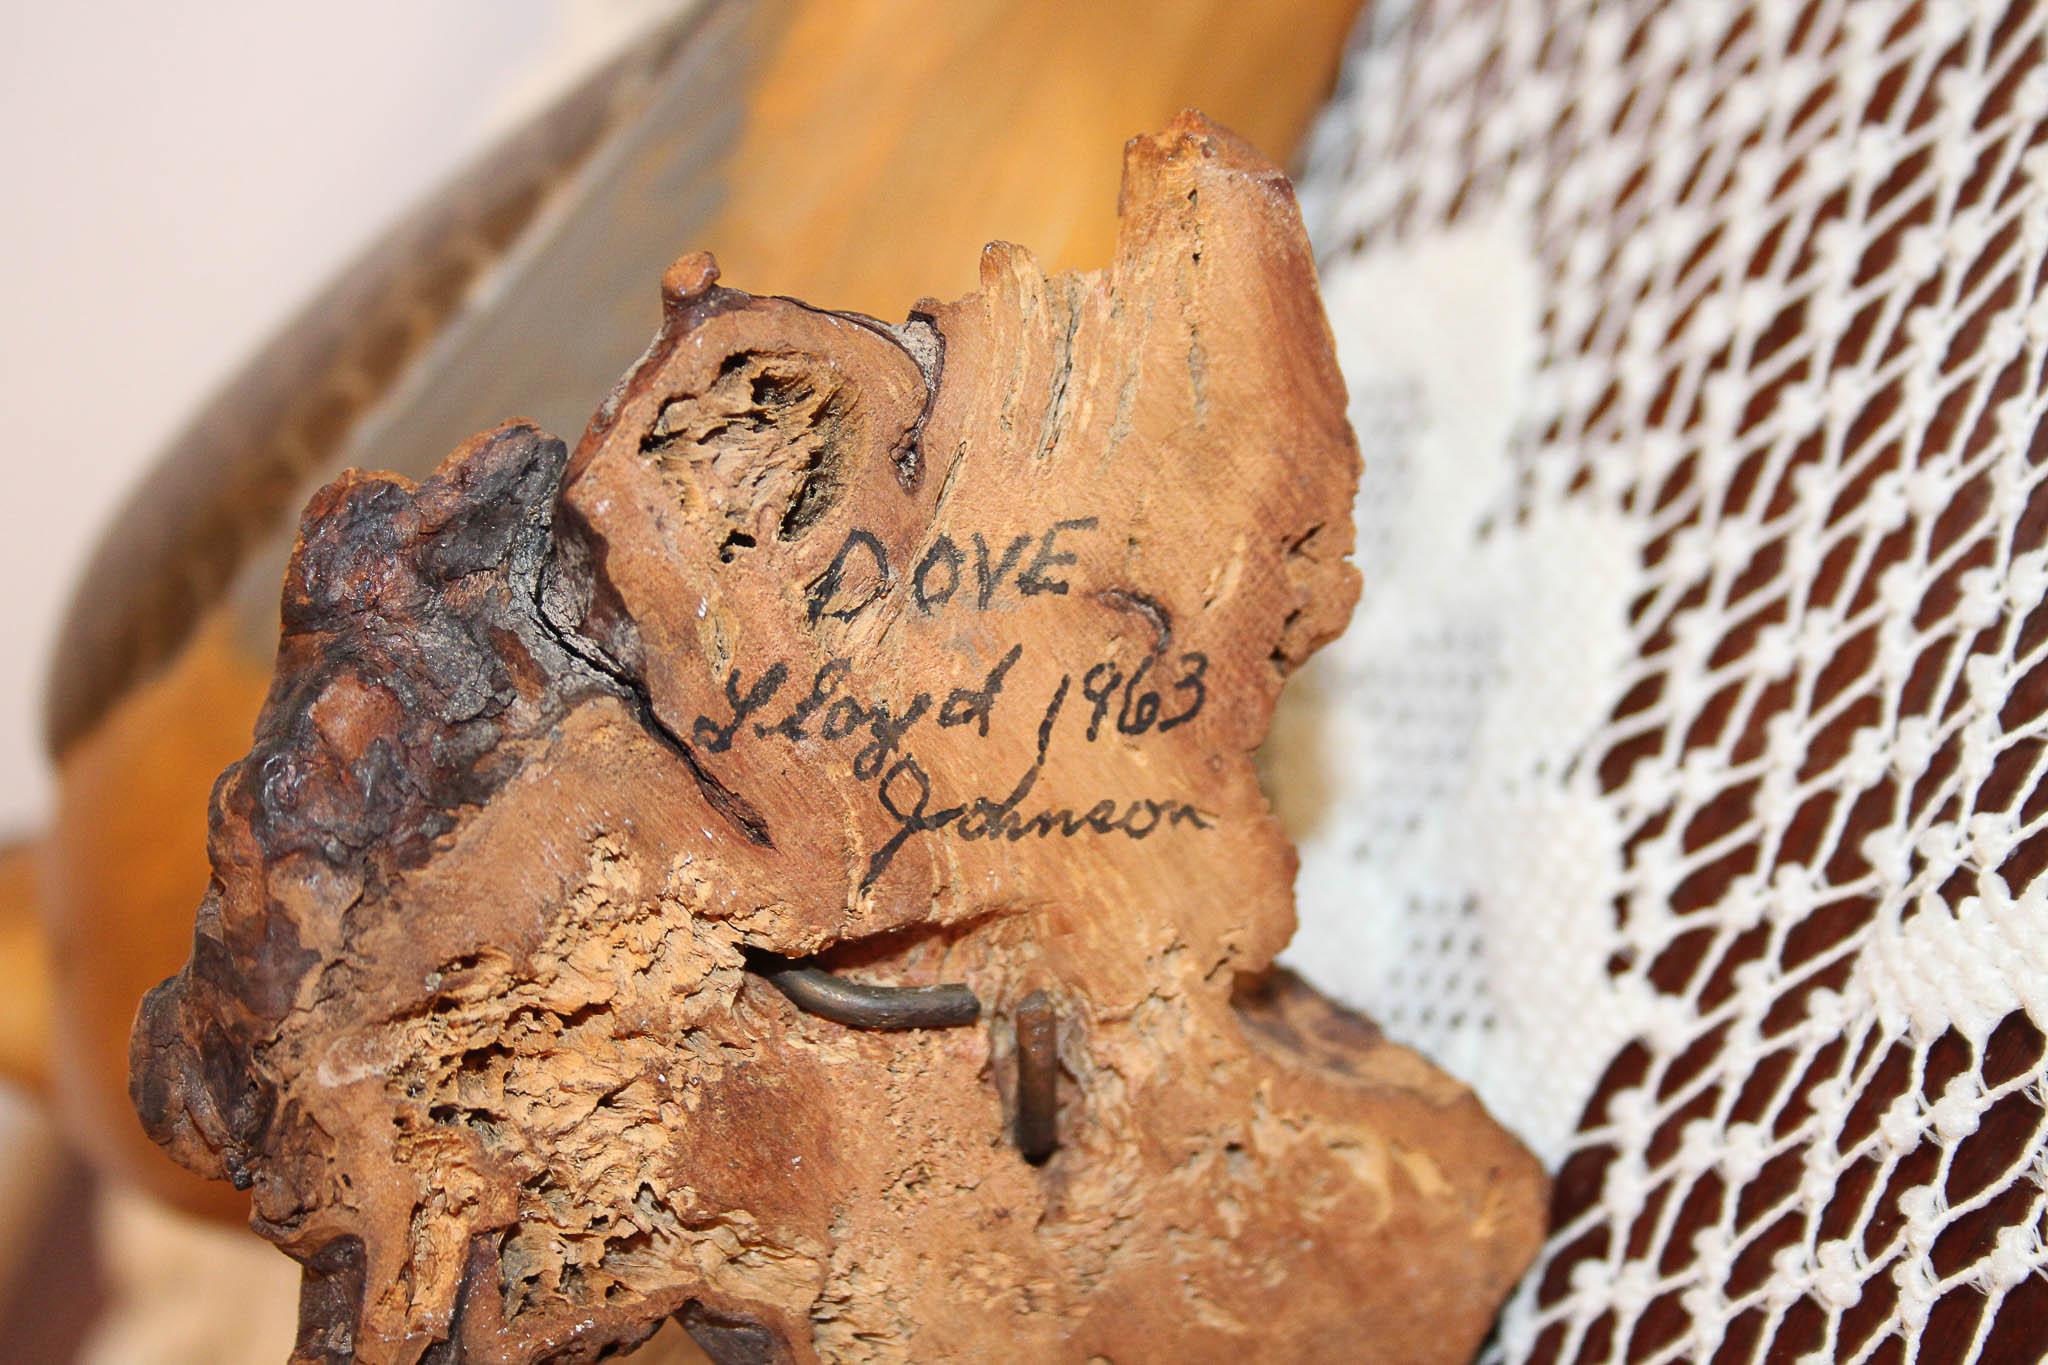 DOVE
Lloyd 1963
Johnson